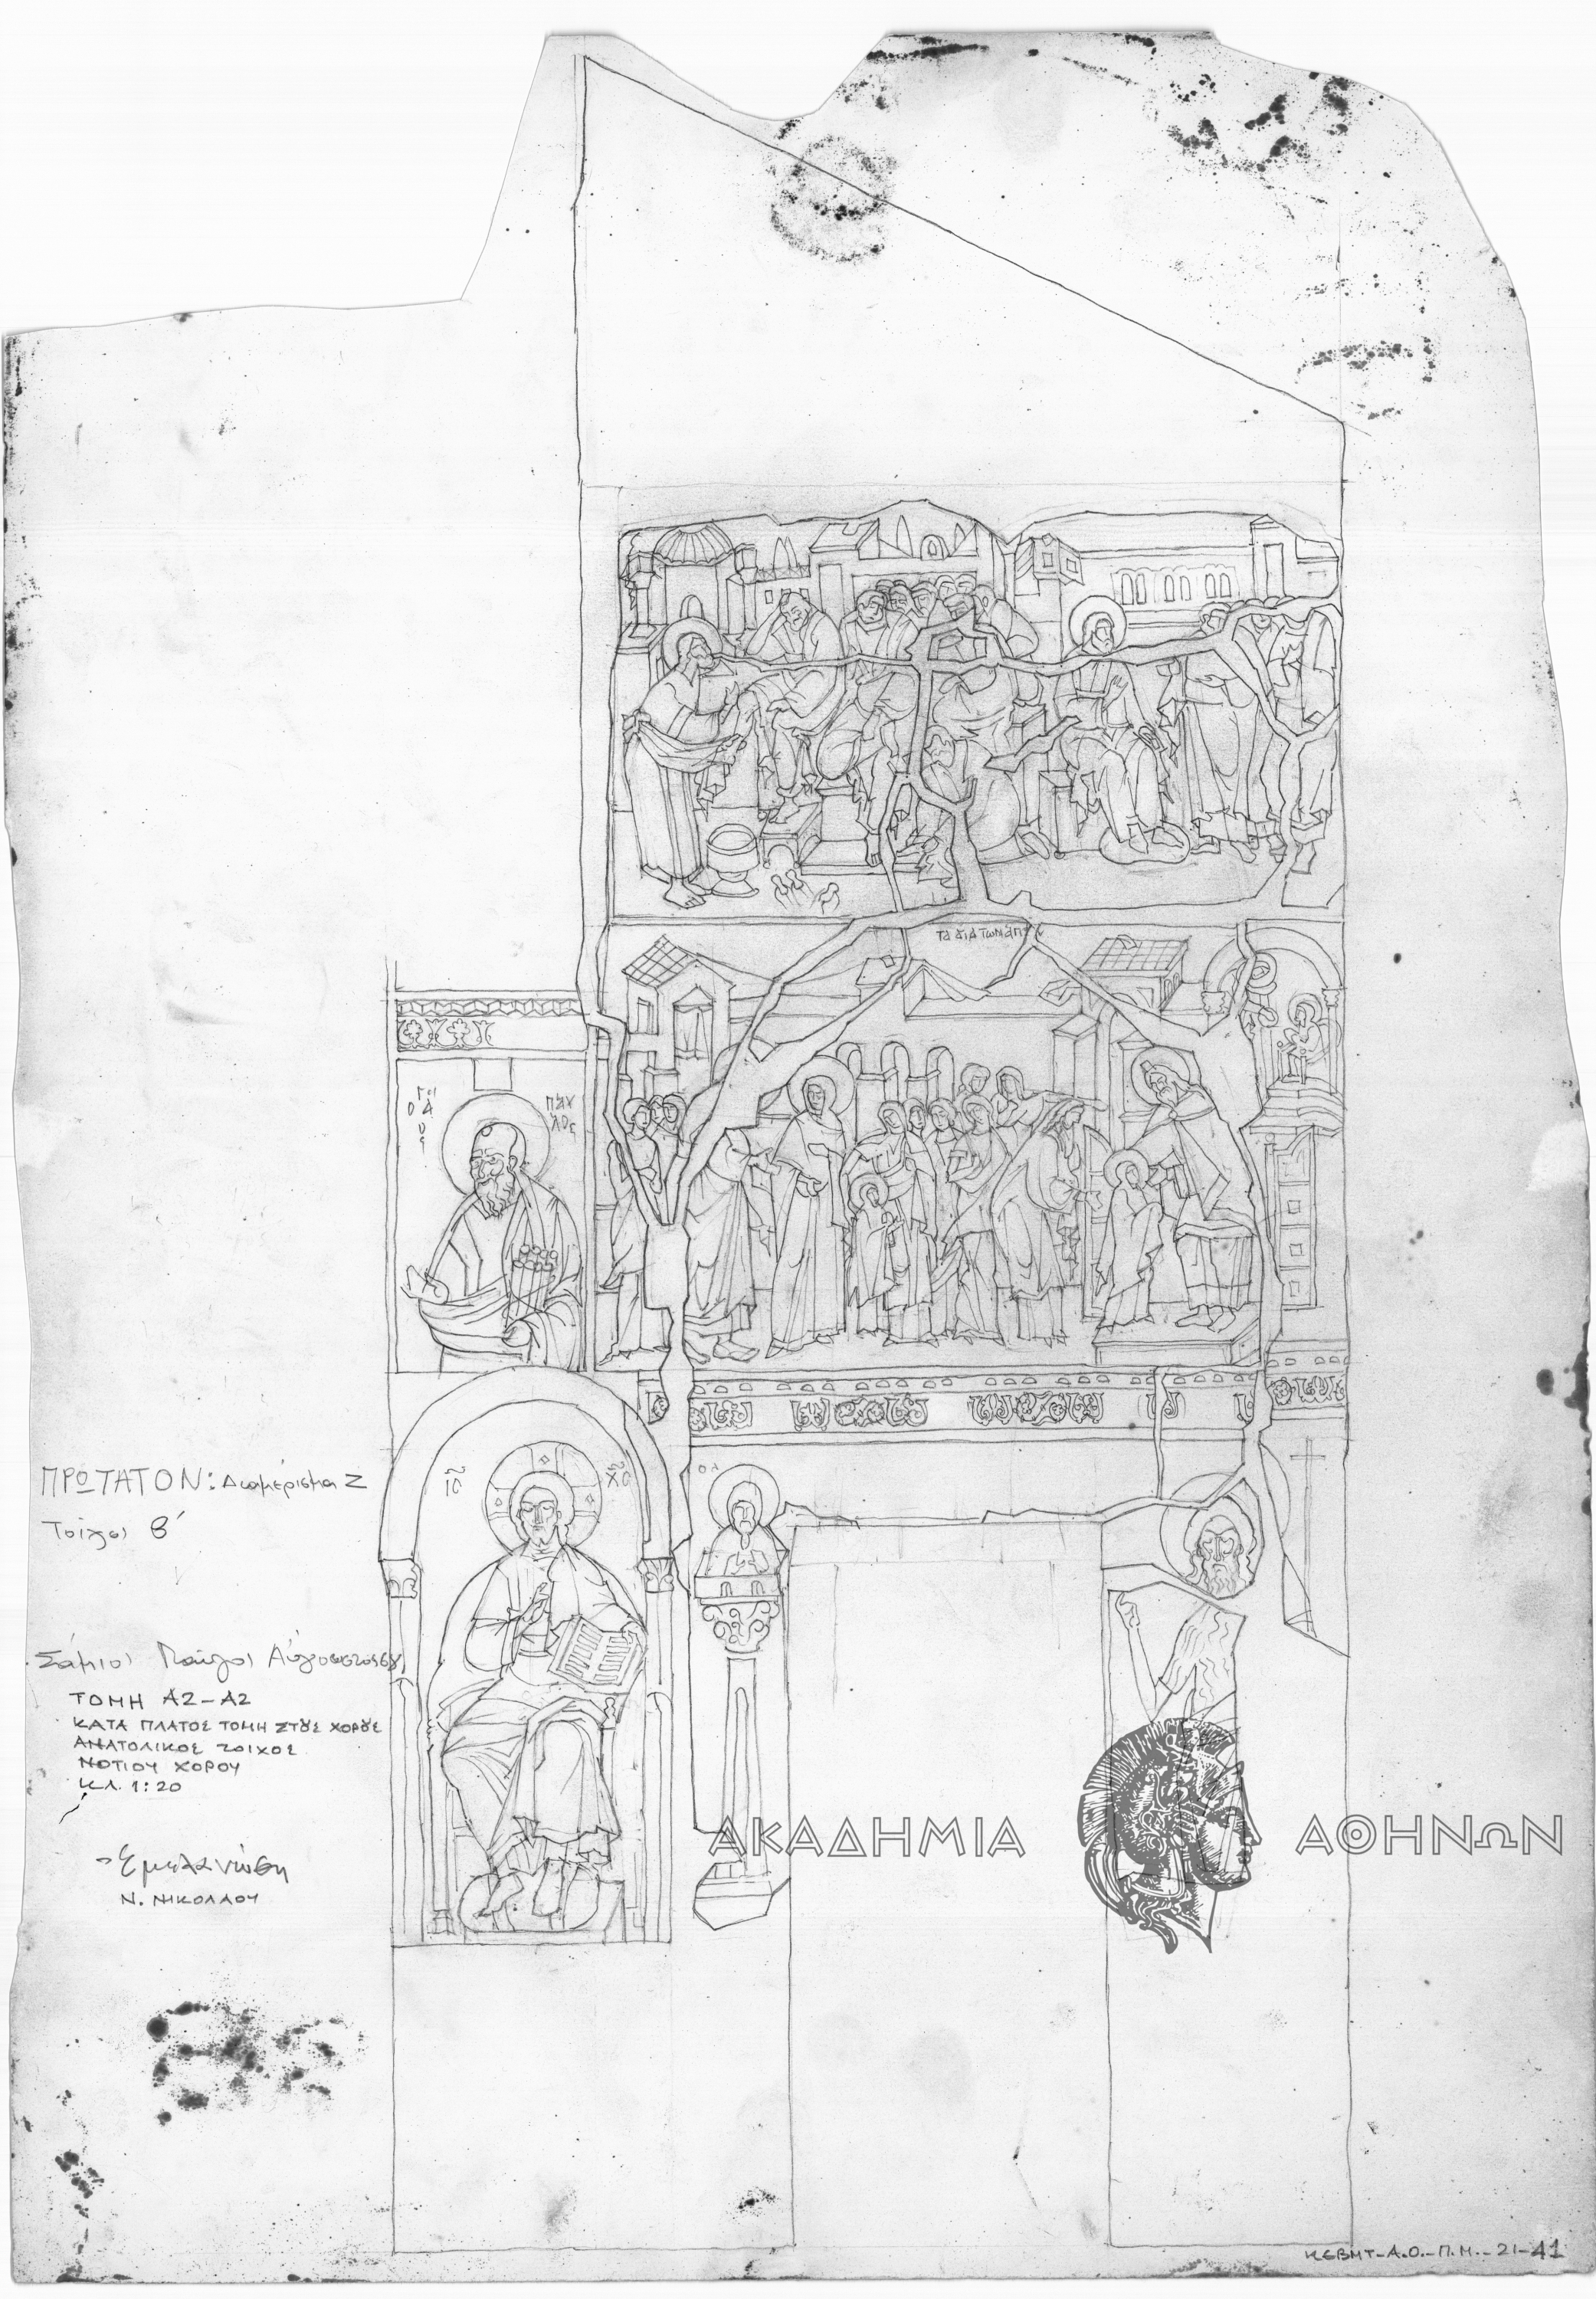 ΤΑ ἍΓΙΑ ΤῶΝ ἉΓΙ
ΠΑΥ
ΛΟς
ΙC
ΧC
ΠΡΩΤΑΤΟΝ: Διαμέρισμα Ζ
Τοίχος Β΄
Σάμιος Παύλος Αύγουστος
ΤΟΜΗ Α2-Α2
ΚΑΤΑ ΠΛΑΤΟΣ ΤΟΜΗ ΣΤȢΣ ΧΟΡȢΣ
ΑΝΑΤΟΛΙΚΟΣ ΤΟΙΧΟΣ
ΝΟΤΙΟΥ ΧΟΡΟΥ
ΚΛ. 1:20
Εμελανώθη
Ν. ΝΙΚΟΛΑΟΥ
ΑΚΑΔΗΜΙΑ ΑΘΗΝΩΝ
ΚΕΒΜΤ-Α.Ο.-Π.Μ.-21-41